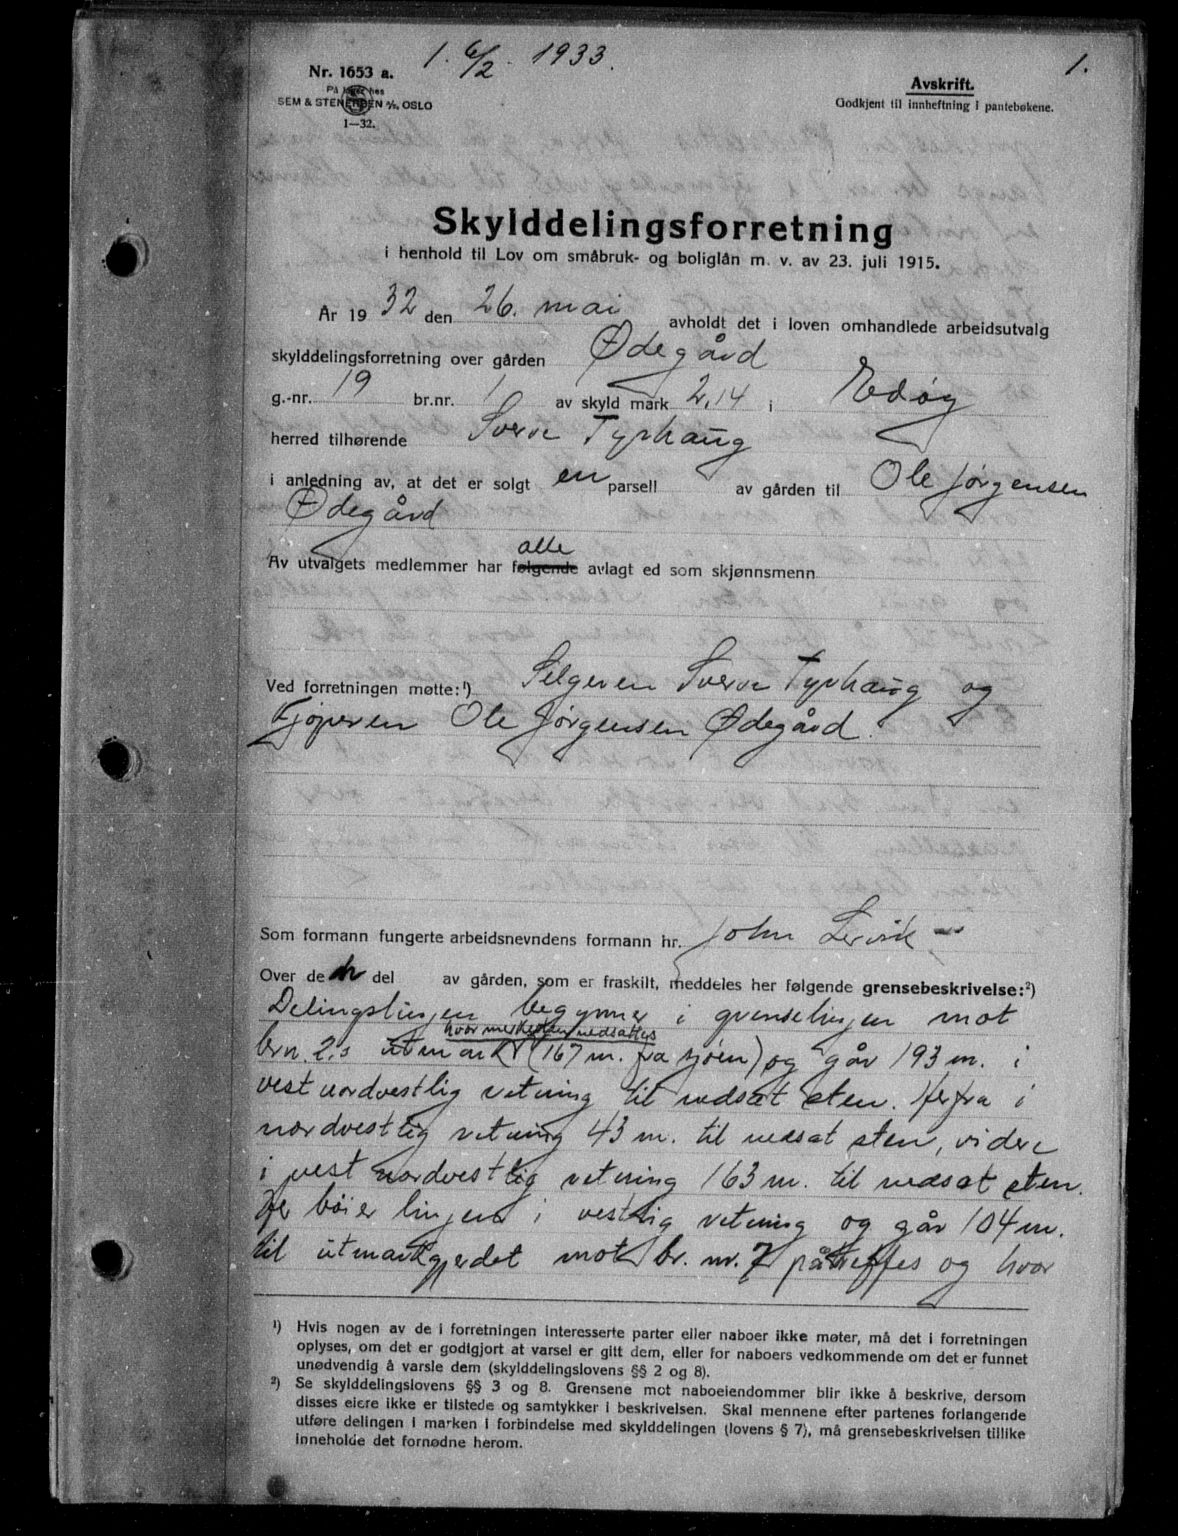 1. 6/2 - 1933.
1.
Nr. 1653 a.
På lager hos
SEM & STENERSEN A/S, OSLO
1—32.
Avskrift.
Godkjent til innheftning i pantebøkene.
Skylddelingsforretning
i henhold til Lov om småbruk- og boliglån m. v. av 23. juli 1915.
År 1932 den 26. mai avholdt det i loven omhandlede arbeidsutvalg
skylddelingsforretning over gården Ødegård
g.-nr. 19 br.nr. 1 av skyld mark 2,14 i Edøy
herred tilhørende Sverre Tyrhaug
i anledning av, at det er solgt en parsell av gården til Ole Jørgensen
Ødegård
alle
Av utvalgets medlemmer har følgende avlagt ed som skjønnsmenn
Ved forretningen møtte:¹) Selgeren Sverre Tyrhaug og
Kjøperen Ole Jørgensen Ødegård.
Som formann fungerte arbeidsnevndens formann hr. John Lervik,
Over den del av gården, som er fraskilt, meddeles her følgende grensebeskrivelse:²)
Delingslinjen begynner i grenselinjen mot
hvor merkesten nedsattes
brn. 2,s utmark (167 m. fra sjøen) og går 193 m. i
vestnordvestlig retning til nedsat sten. Herfra i
nordvestlig retning 43 m. til nedsat sten, videre
i vestnordvestlig retning 163 m. til nedsat sten.
Her bøier linjen i vestlig retning og går 104 m.
til utmarkgjerdet mot br. nr. 7 påtreffes og hvor
¹) Hvis nogen av de i forretningen interesserte parter eller naboer ikke møter, må det i forretningen
oplyses, om det er godtgjort at varsel er gitt dem, eller for naboers vedkommende om det er funnet
unødvendig å varsle dem (skylddelingslovens §§ 2 og 8).
²) Se skylddelingslovens §§ 3 og 8. Grensene mot naboeiendommer blir ikke å beskrive, dersom
disses eiere ikke er tilstede og samtykker i beskrivelsen. Skal mennene efter partenes forlangende
utføre delingen i marken i forbindelse med skylddelingen (lovens § 7), må grensebeskrivelsen tillike
inneholde det fornødne herom.